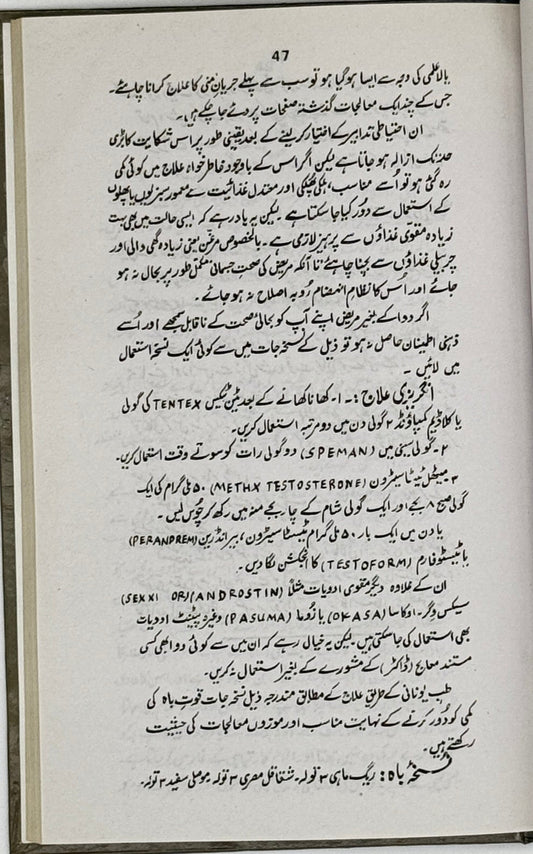 47
بالاعلمی کی وجہ سے ایسا ہو گیا ہو تو سب سے پہلے جریانِ منی کا علاج کرانا چاہئے۔
جس کے چند ایک معالجات گذشتہ صفحات پر دئے جا چکے ہیں۔
ان احتیاطی تدابیر کے اختیار کر لینے کے بعد یقینی طور پر اس شکایت کا بڑی
حد تک ازالہ ہو جاتا ہے لیکن اگر اس کے باوجود خاطر خواہ علاج میں کوئی کمی
رہ گئی ہو تو اُسے مناسب، ہلکی پھلکی اور معتدل غذائیت سے معمور سبزیوں یا پھلوں
کے استعمال سے دُور کیا جا سکتا ہے۔ لیکن یہ یاد رہے کہ ایسی حالت میں بھی بہت
زیادہ مقوی غذاؤں سے پرہیز لازمی ہے۔ بالخصوص مرغّن یعنی زیادہ گھی والی اور
چربیلی غذاؤں سے بچنا چاہئے تا آنکہ مریض کی صحت جسمانی مکمل طور پر بحال نہ ہو
جائے اور اُس کا نظامِ انہضام رُو بہ اصلاح نہ ہو جائے۔
اگر دوا کے بغیر مریض اپنے آپ کو بحالیٔ صحت کے ناقابل سمجھے اور اُسے
ذہنی اطمینان حاصل نہ ہو تو ذیل کے نسخہ جات میں سے کوئی ایک نسخہ استعمال
میں لائیں۔
انگریزی علاج :۔ ۱۔ کھانا کھانے کے بعد ٹین ٹیکس TENTEX کی گولی
یا کلاڈیم کمپاؤنڈ ۲ گولی دن میں دو مرتبہ استعمال کریں۔
۲۔ گولی سپی مین (SPEMAN) دو گولی رات کو سوتے وقت استعمال کریں۔
۳۔ میتھل ٹیسٹاسیٹرون (METHX TESTOSTERONE) ۵۰ ملی گرام کی ایک
گولی صبح ۸ بجے اور ایک گولی شام کے چار بجے منہ میں رکھ کر چوس لیں۔
یا دن میں ایک بار ۵۰ ملی گرام ٹیسٹاسیٹرون، پیرانڈرین (PERANDREM)
یا ٹیسٹوفارم (TESTOFORM) کا انجکشن لگا دیں۔
ان کے علاوہ دیگر مقوی ادویات مثلاً (SEXXI OR)(ANDROSTIN)
سیکس وگر۔ اوکاسا (OKASA) یا زوما (PASUMA) وغیرہ پیٹنٹ ادویات
بھی استعمال کی جا سکتی ہیں۔ لیکن یہ خیال رہے کہ ان میں سے کوئی دوا بھی کسی
مستند معالج (ڈاکٹر) کے مشورے کے بغیر استعمال نہ کریں۔
طب یونانی کے طریق علاج کے مطابق مندرجہ ذیل نسخہ جات قوتِ باہ کی
کمی کو دُور کرنے کے نہایت مناسب اور موزوں معالجات کی حیثیت
رکھتے ہیں۔
نسخۂ باہ : ریگ ماہی ۳ تولہ۔ شقاقل مصری ۳ تولہ موصلی سفید ۳ تولہ۔